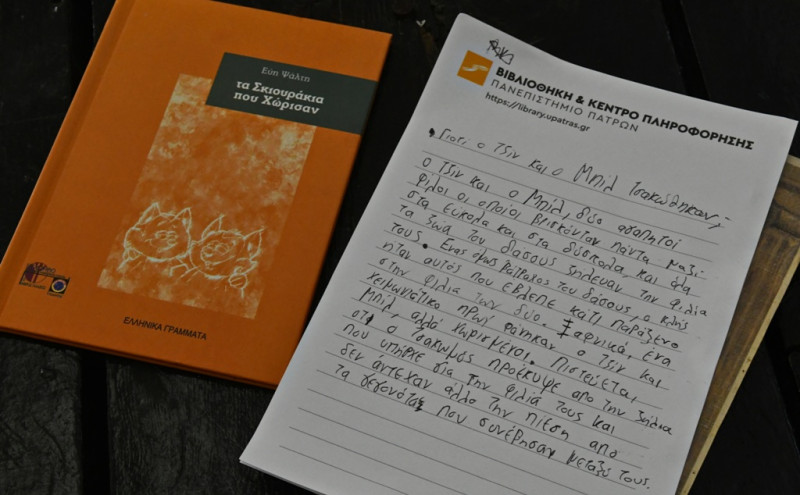 Εύη Ψάλτη
τα Σκιουράκια
που Χώρισαν
ΕΛΛΗΝΙΚΑ ΓΡΑΜΜΑΤΑ
ΒΙΒΛΙΟΘΗΚΗ & ΚΕΝΤΡΟ ΠΛΗΡΟΦΟΡΗΣΗΣ
ΠΑΝΕΠΙΣΤΗΜΙΟ ΠΑΤΡΩΝ
https://library.upatras.gr
Γιατί ο Τζιν και ο Μπιλ Τσακώθηκαν;
Ο Τζιν και ο Μπιλ, δύο αγαπητοί
φίλοι οι οποίοι βρισκόνταν πάντα μαζί
στα εύκολα και στα δύσκολα και όλα
τα ζώα του δάσους ζήλευαν την φιλία
τους. Ένας όμως βάτραχος του δάσους, ο κλης
ήταν αυτός που έβλεπε κάτι παράξενο
στην φιλία των δύο. Ξαφνικά, ένα
χειμωνιάτικο πρωί φάνηκαν ο Τζιν και
Μπιλ, αλλά χωρισμένοι. Πιστεύεται,
οτι ο τσακωμός προέκυψε απο την ζήλια
που υπήρχε για την φιλιά τους και
δεν άντεχαν άλλο την πίεση απο
τα γεγονότα που συνέβησαν μεταξύ τους.